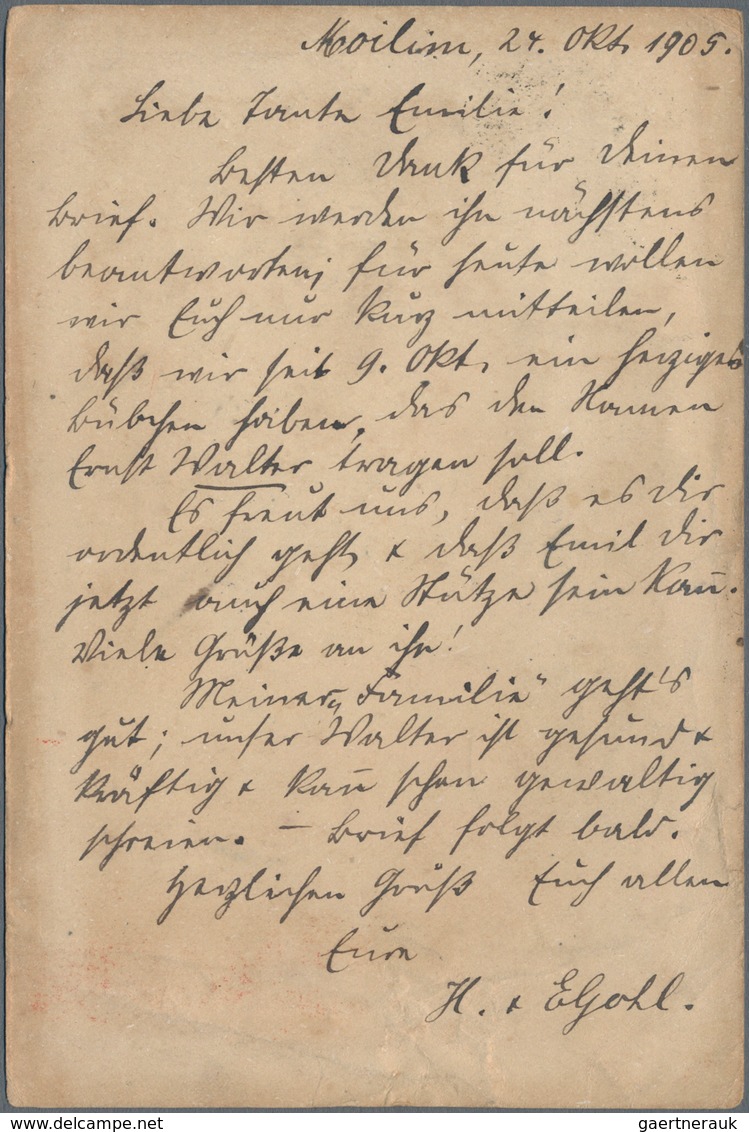 Moilim, 24. Okt. 1905.
Liebe Tante Emilie!
Besten Dank für Deinen
Brief. Wir werden ihn nächstens
beantworten; für heute wollen
wir Euch nur kurz mitteilen,
daß wir seit 9. Okt. ein herziges
Bübchen haben, das den Namen
Ernst Walter tragen soll.
Es freut uns, daß es Dir
ordentlich geht & daß Emil Dir
jetzt auch eine Stütze sein kan̄.
Viele Grüße an ihn!
Meiner „Familie“ geht's
gut; unser Walter ist gesund &
kräftig & kan̄ schon gewaltig
schreien. – Brief folgt bald.
Herzlichen Gruß Euch allen
Eure
H. & EGohl.
gaertnerauk